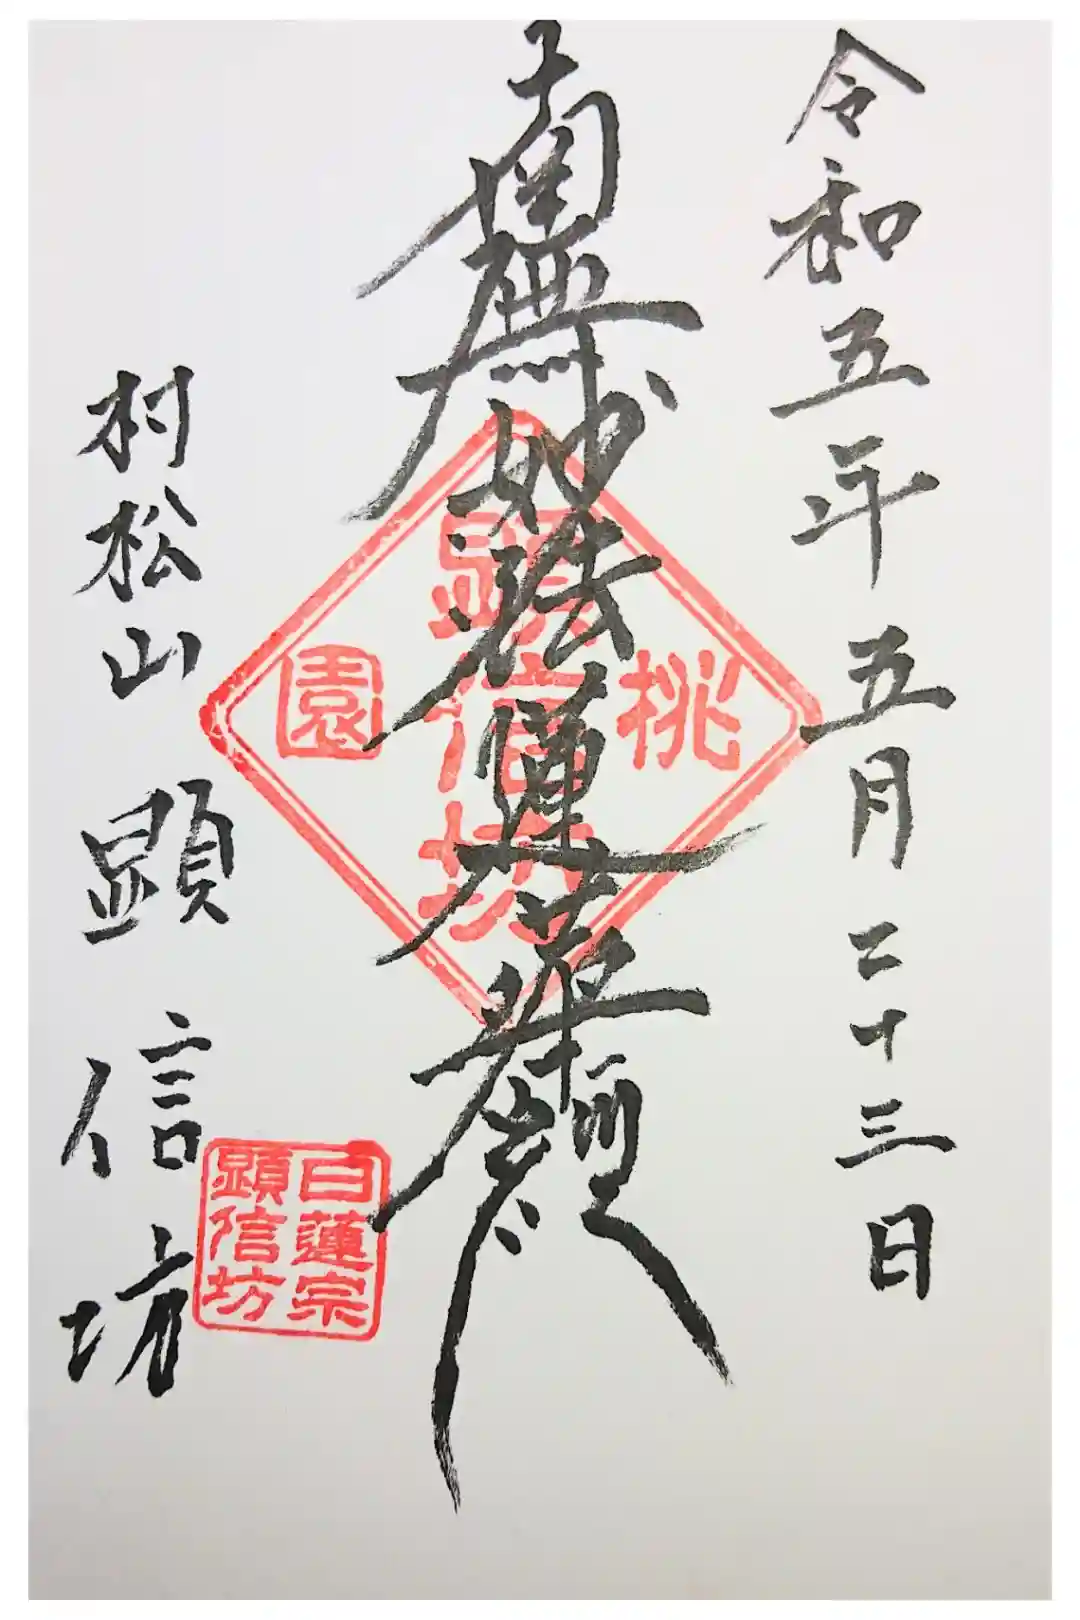 令和五年五月二十三日
南無妙法蓮華経
桃
顕信坊
園
村松山 顕信坊
白蓮宗
顕信坊